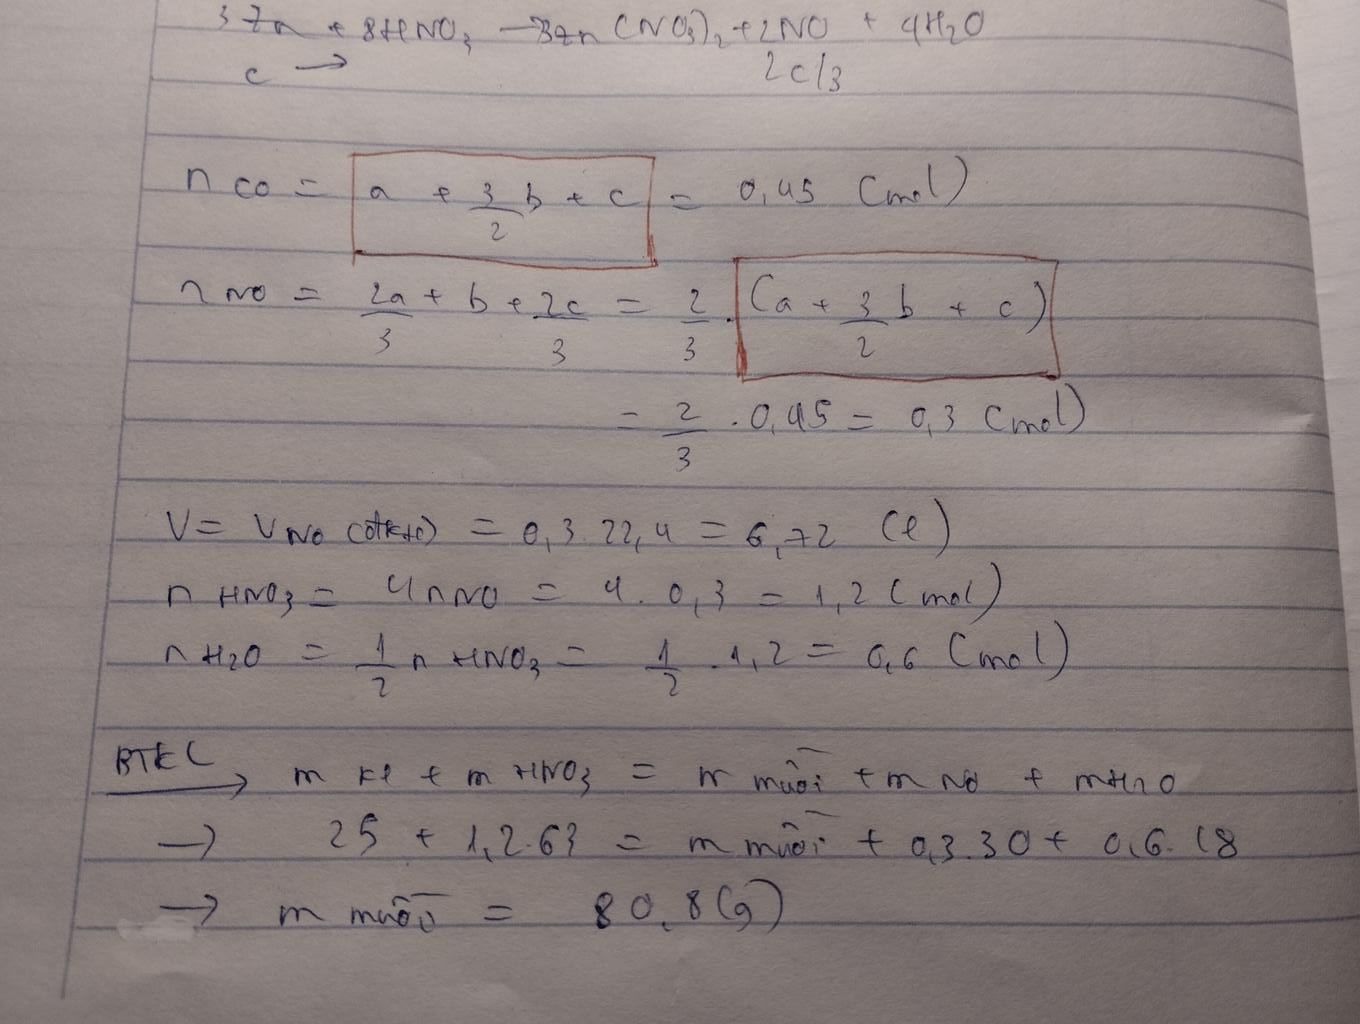 3Zn + 8HNO3 → 3Zn(NO3)2 + 2NO + 4H2O
c → 2c/3
n CO = a + 3/2 b + c = 0,45 (mol)
n NO = 2a/3 + b + 2c/3 = 2/3 . (a + 3/2 b + c)
= 2/3 . 0,45 = 0,3 (mol)
V = V NO (đktc) = 0,3.22,4 = 6,72 (l)
n HNO3 = 4n NO = 4.0,3 = 1,2 (mol)
n H2O = 1/2 n HNO3 = 1/2 .1,2 = 0,6 (mol)
BTKL → m kl + m HNO3 = m muối + m NO + m H2O
→ 25 + 1,2.63 = m muối + 0,3.30 + 0,6.18
→ m muối = 80,8 (g)